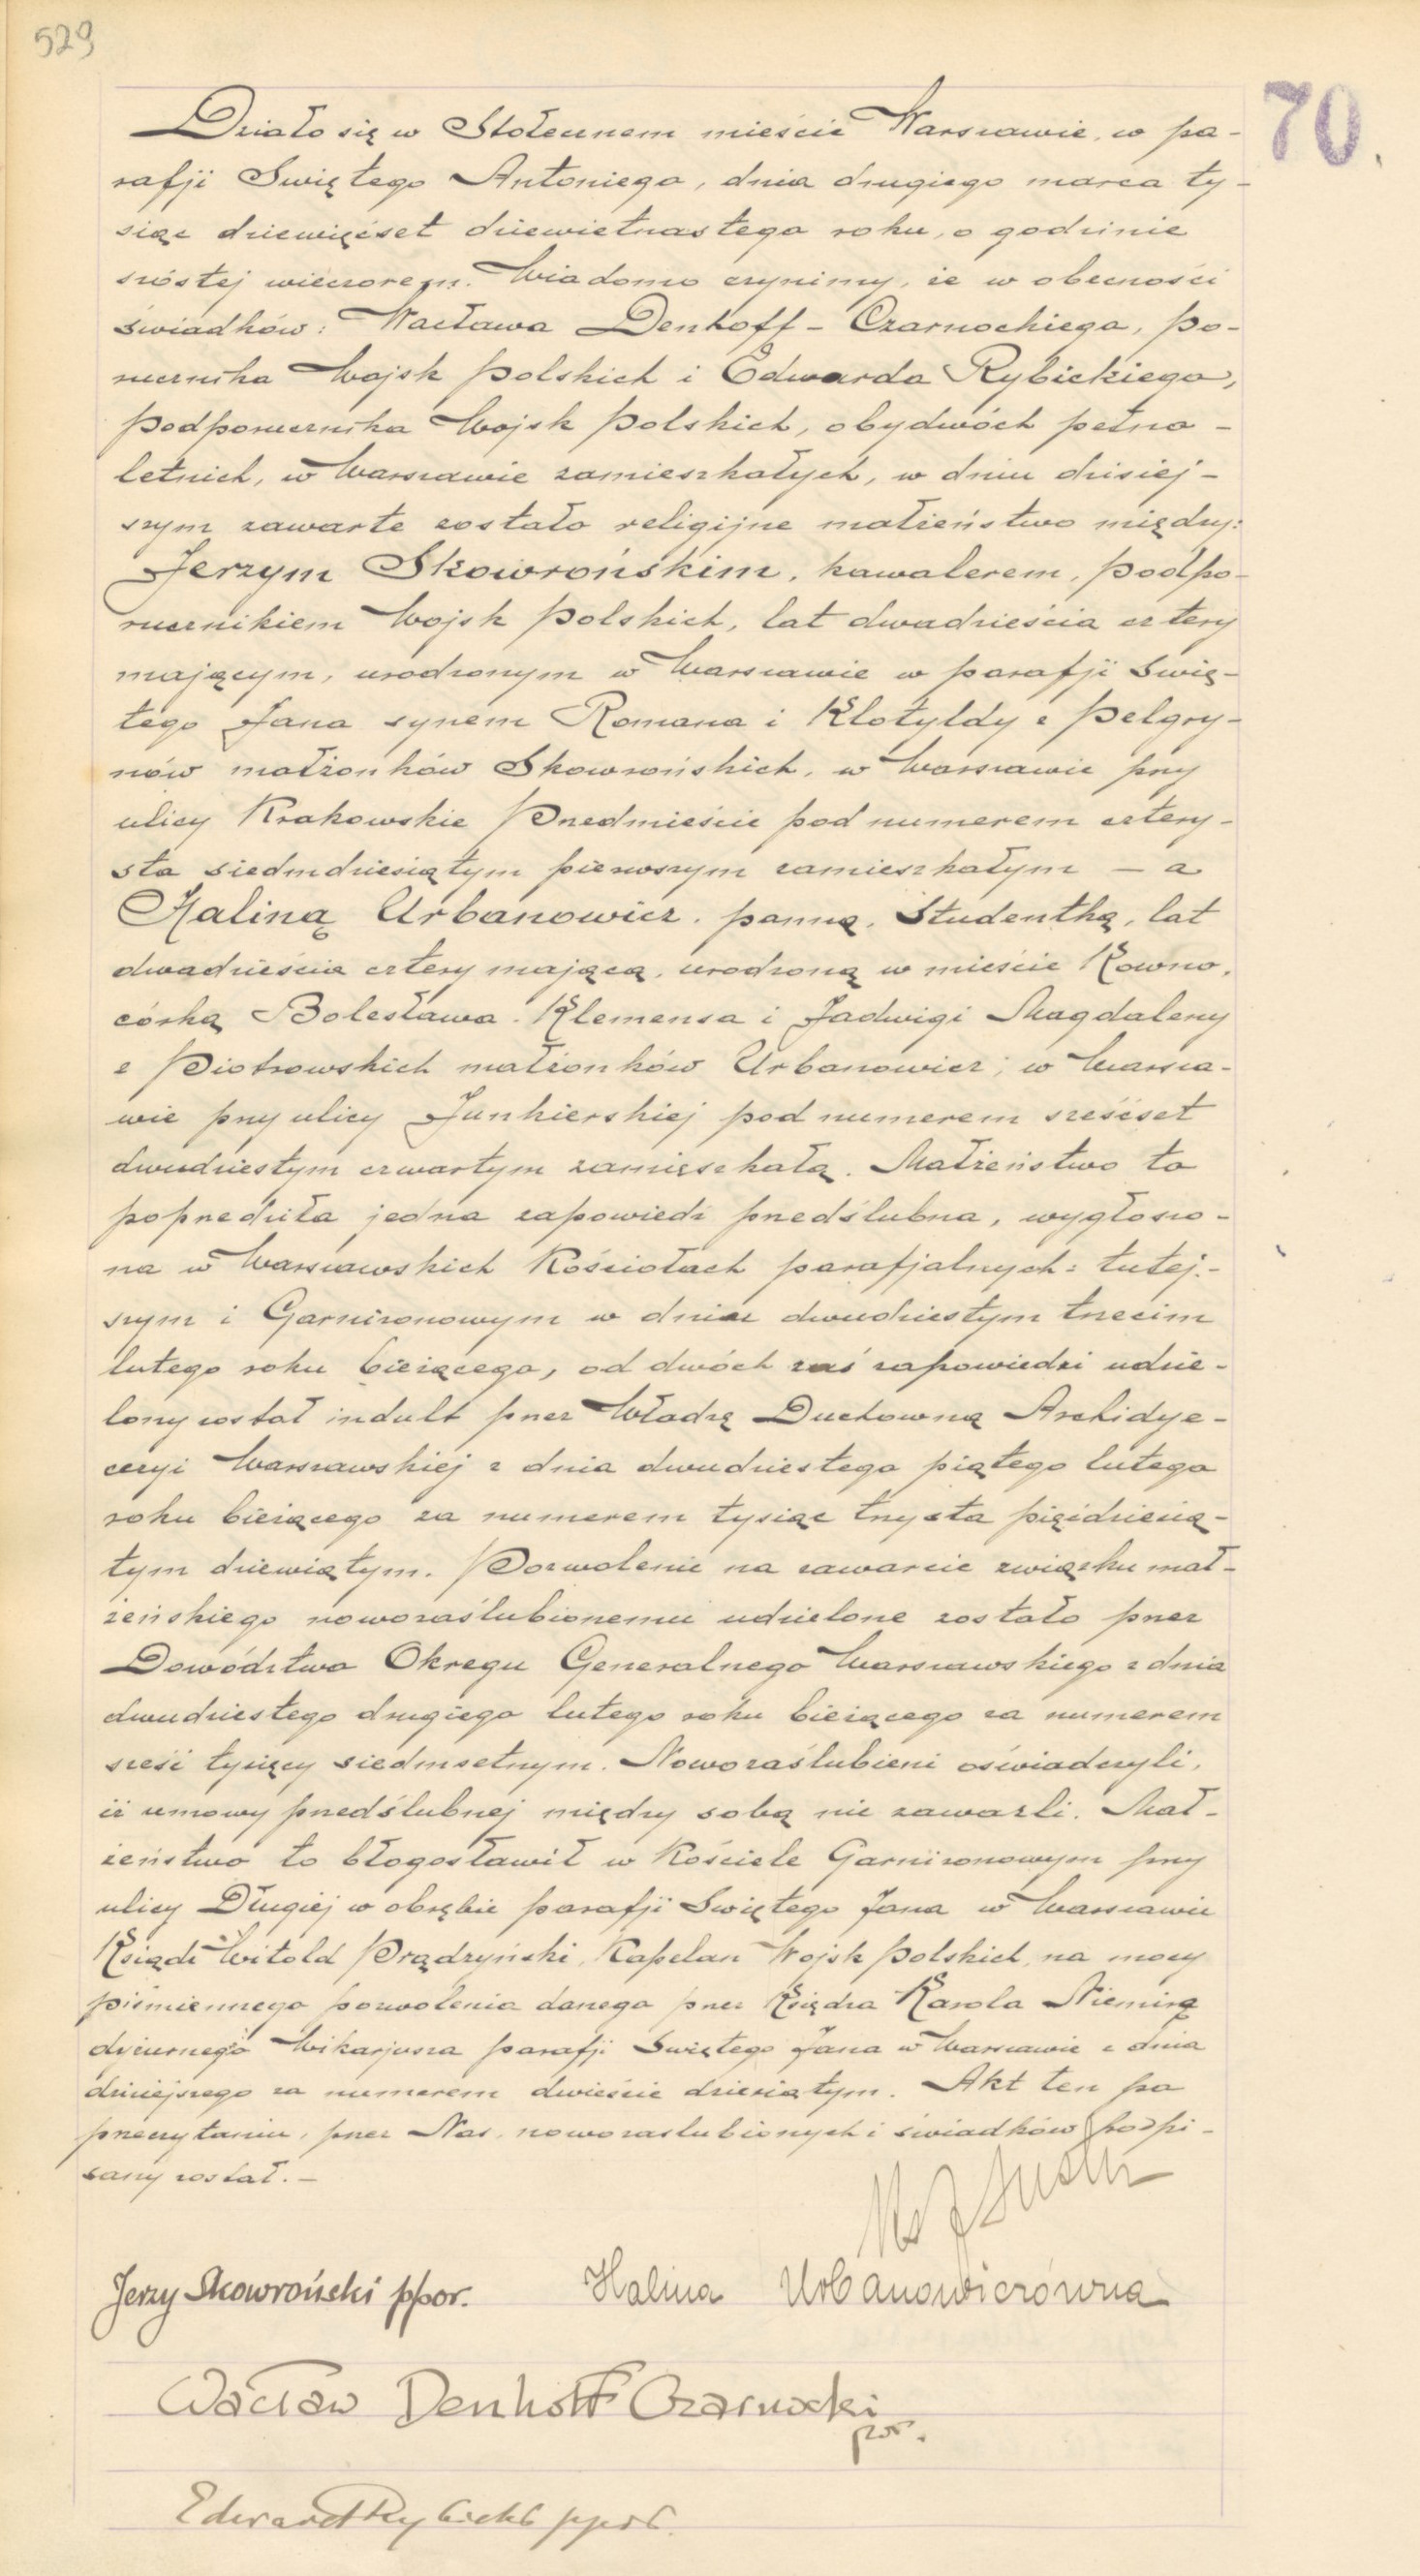 529
70.
Działo się w Stołecznem mieście Warszawie, w pa-
rafji Świętego Antoniego, dnia drugiego marca ty-
siąc dziewięćset dziewietnastego roku, o godzinie
szóstej wieczorem. Wiadomo czynimy, że w obecności
świadków: Wacława Denhoff-Czarnockiego, po-
rucznika Wojsk Polskich i Edwarda Rybickiego,
podporucznika Wojsk Polskich, obydwóch pełno-
letnich, w Warszawie zamieszkałych, w dniu dzisiej-
szym zawarte zostało religijne małżeństwo między:
Jerzym Skowrońskim, kawalerem, podpo-
rucznikiem Wojsk Polskich, lat dwadzieścia cztery
mającym, urodzonym w Warszawie w parafji Świę-
tego Jana synem Romana i Klotyldy z Pelgry-
nów małżonków Skowrońskich, w Warszawie przy
ulicy Krakowskie Przedmieście pod numerem cztery-
sta siedmdziesiątym pierwszym zamieszkałym — a
Haliną Urbanowicz, panną, Studentką, lat
dwadzieścia cztery mającą, urodzoną w mieście Kowno,
córką Bolesława-Klemensa i Jadwigi Magdaleny
z Piotrowskich małżonków Urbanowicz; w Warsza-
wie przy ulicy Junkierskiej pod numerem sześćset
dwudziestym czwartym zamieszkałą. Małżeństwo to
poprzedziła jedna zapowiedź przedślubna, wygłoszo-
na w Warszawskich Kościołach parafjalnych: tutej-
szym i Garnizonowym w dniu dwudziestym trzecim
lutego roku bieżącego, od dwóch zaś zapowiedzi udzie-
lony został indult przez Władzę Duchowną Archidye-
cezyi Warszawskiej z dnia dwudziestego piątego lutego
roku bieżącego za numerem tysiąc trzysta pięćdziesią-
tym dziewiątym. Pozwolenie na zawarcie związku mał-
żeńskiego nowozaślubionemu udzielone zostało przez
Dowództwo Okręgu Generalnego Warszawskiego z dnia
dwudziestego drugiego lutego roku bieżącego za numerem
sześć tysięcy siedmsetnym. Nowozaślubieni oświadczyli,
iż umowy przedślubnej między sobą nie zawarli. Mał-
żeństwo to błogosławił w Kościele Garnizonowym przy
ulicy Długiej w obrębie parafji Świętego Jana w Warszawie
Ksiądz Witold Prądzyński, Kapelan Wojsk Polskich, na mocy
piśmiennego pozwolenia danego przez Księdza Karola Niemirę
dyżurnego Wikarjusza parafji Świętego Jana w Warszawie z dnia
dzisiejszego za numerem dwieście dziesiątym. Akt ten po
przeczytaniu, przez Nas, nowozaślubionych i świadków podpi-
sany został. —
Jerzy Skowroński ppor. Halina Urbanowiczówna
Wacław Denhoff Czarnocki
por.
Edward Rybicki ppor.